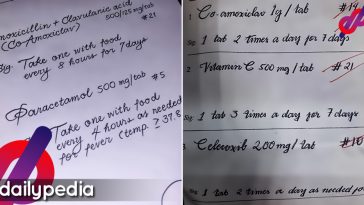 Amoxicillin + Clavulanic acid
(Co-Amoxiclav) 500/125 mg/tab #21
Sig. Take one with food
every 8 hours for 7 days
Paracetamol 500 mg/tab #5
Take one with food
every 4 hours as needed
for fever (temp. ≥ 37.8
dailypedia
1 Co-amoxiclav 1g / tab #14
Sig 1 tab 2 times a day for 7 days
2 Vitamin C 500 mg / tab #21
1 tab 3 times a day for 7 days
Celecoxib 200 mg / tab #10
Sig 1 tab 2 times a day as needed for